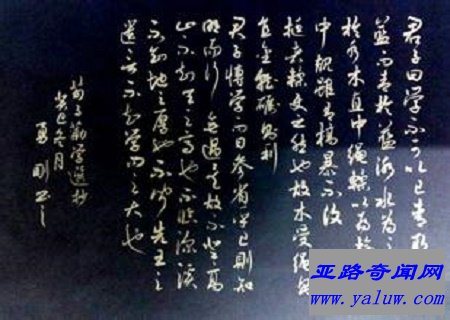 君子曰学不可以已青取
蓝而青於蓝冰水为之
於水木直中绳輮以为轮
中规虽有槁暴不复
挺者輮使之然也故木受绳则
直金就砺则利
君子博学而日参省乎己则知
明而行无过矣故不登高
山不知天之高也不临深溪
不知地之厚也不闻先王之
遗言不知学问之大也
荀子劝学选抄
癸巳冬月
刚书
亚路奇闻网
www.yaluw.com